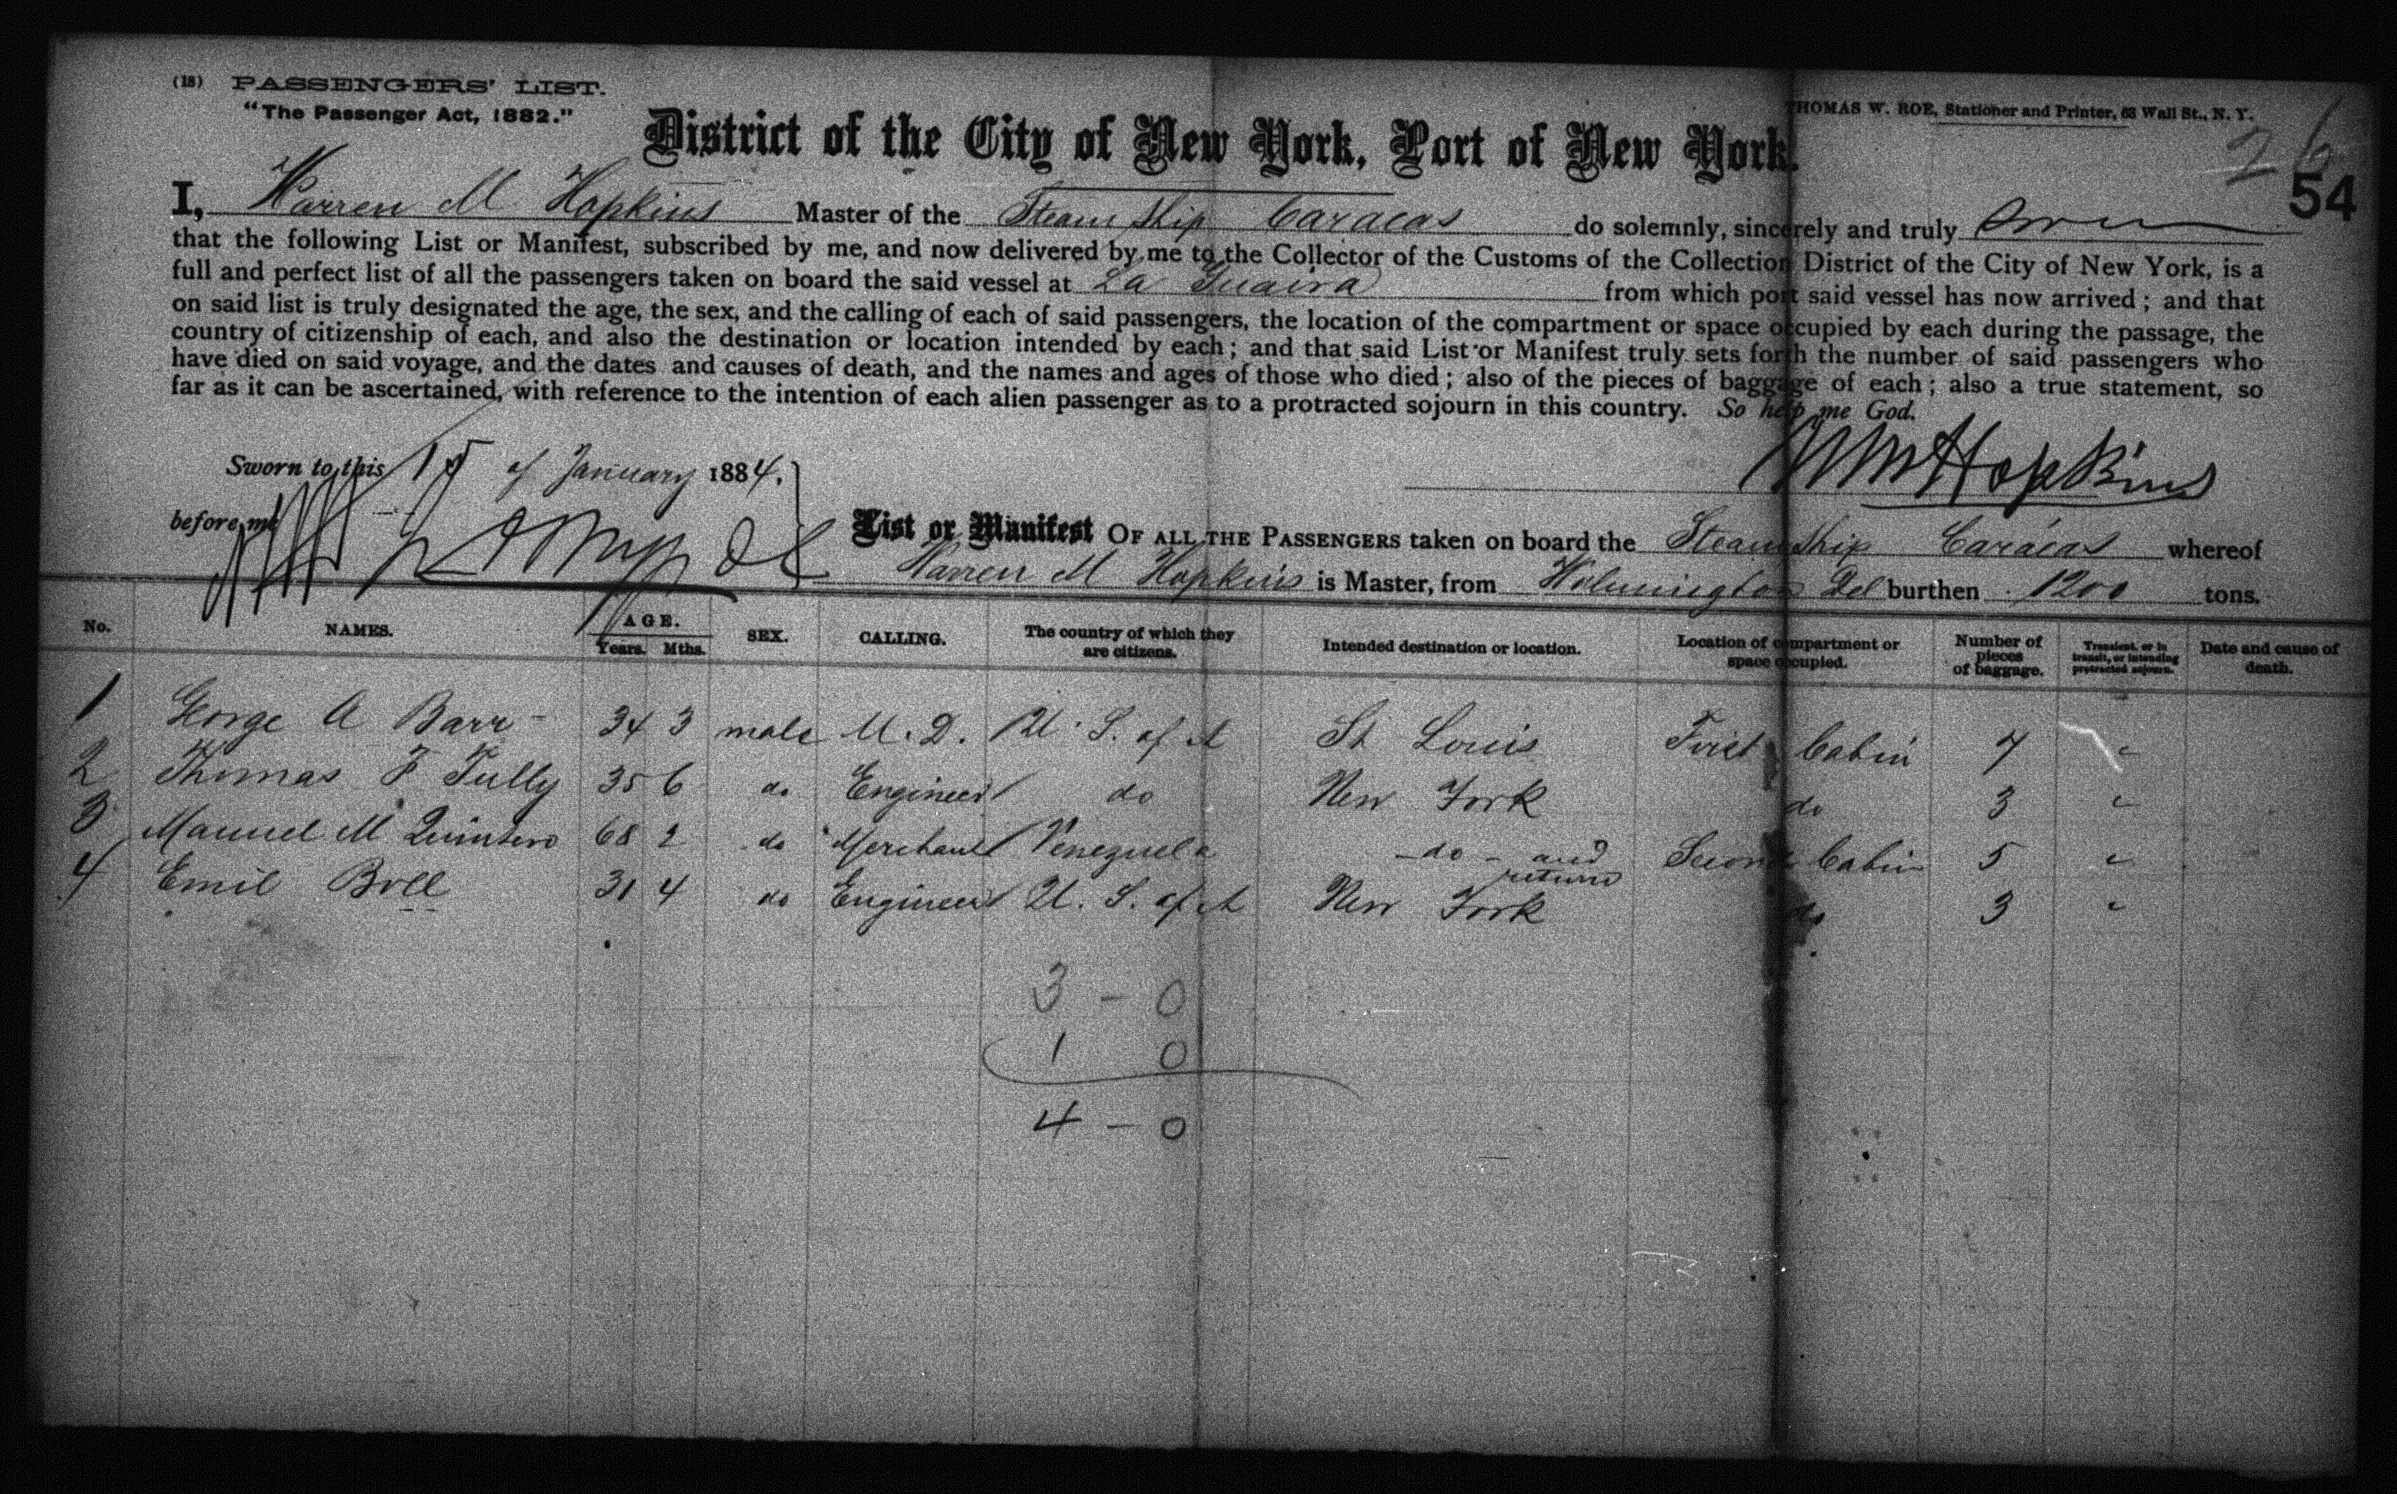 (18) PASSENGERS' LIST.
"The Passenger Act, 1882."
THOMAS W. ROE, Stationer and Printer, 63 Wall St., N. Y.
26
54
District of the City of New York, Port of New York.
I, Warren M Hopkins Master of the Steam Ship Caracas do solemnly, sincerely and truly
that the following List or Manifest, subscribed by me, and now delivered by me to the Collector of the Customs of the Collection District of the City of New York, is a
full and perfect list of all the passengers taken on board the said vessel at La Guaira from which port said vessel has now arrived; and that
on said list is truly designated the age, the sex, and the calling of each of said passengers, the location of the compartment or space occupied by each during the passage, the
country of citizenship of each, and also the destination or location intended by each; and that said List or Manifest truly sets forth the number of said passengers who
have died on said voyage, and the dates and causes of death, and the names and ages of those who died; also of the pieces of baggage of each; also a true statement, so
far as it can be ascertained, with reference to the intention of each alien passenger as to a protracted sojourn in this country. So help me God.
Sworn to this 15 of January 1884.
WM Hopkins
before me
List or Manifest OF ALL THE PASSENGERS taken on board the Steam Ship Caracas whereof
Warren M Hopkins is Master, from Wilmington Del burthen 1200 tons.
No. NAMES. AGE. Years. Mths. SEX. CALLING. The country of which they are citizens. Intended destination or location. Location of compartment or space occupied. Number of pieces of baggage. Transient, or in transit, or intending protracted sojourn. Date and cause of death.
1 George A Barr 34 3 male M.D. U. S. of A St Louis First Cabin 7 "
2 Thomas F Tully 35 6 do Engineer do New York do 3 "
3 Manuel M Quintero 68 2 do Merchant Venezuela - do - and return Second Cabin 5 "
4 Emil Boll 31 4 do Engineer U. S. of A New York do 3 "
3 - 0
1 0
4 - 0